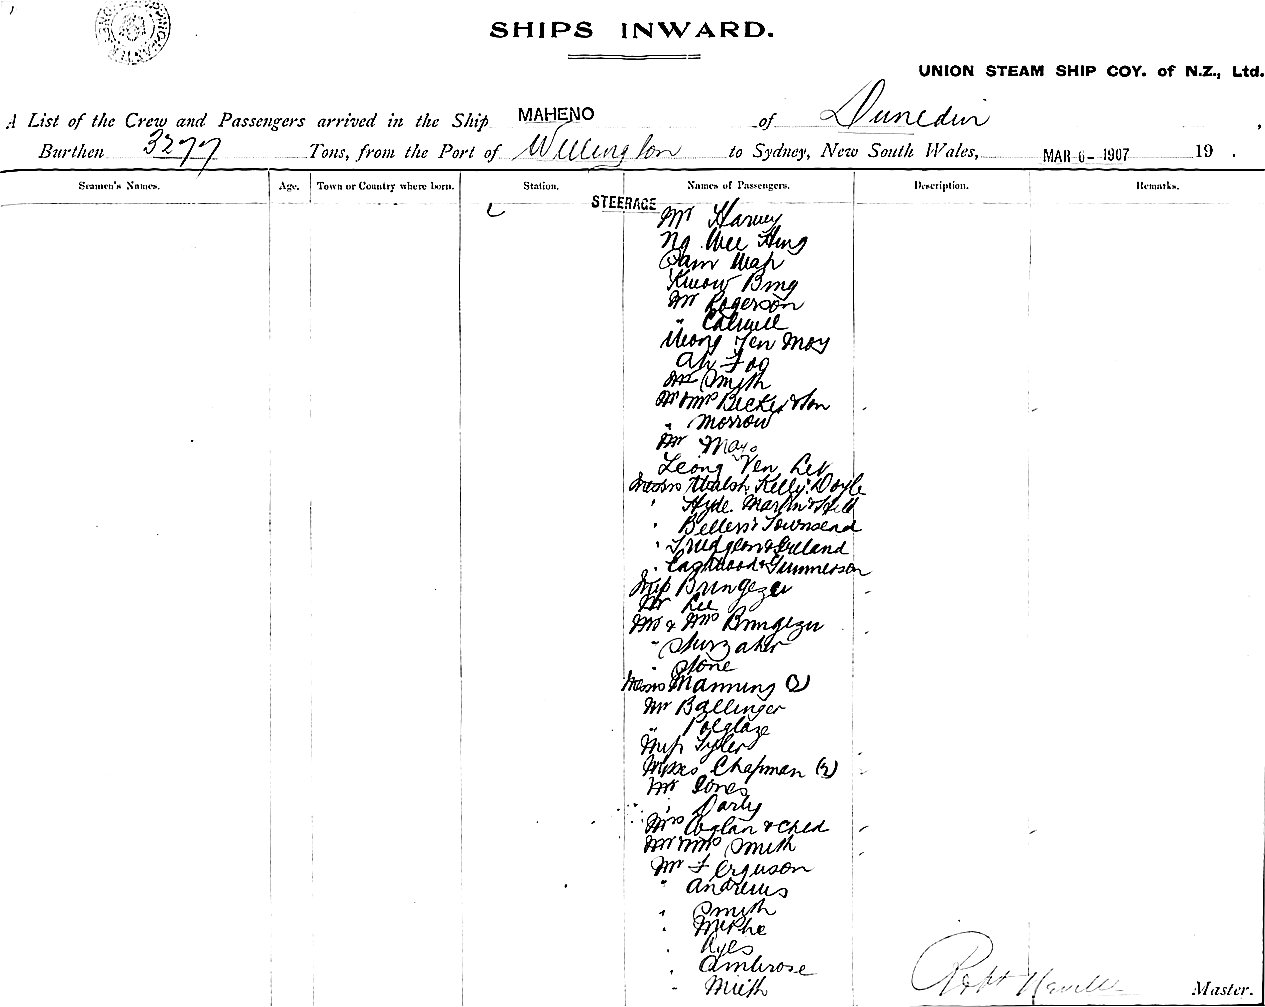 SHIPS INWARD.
UNION STEAM SHIP COY. of N.Z., Ltd.
A List of the Crew and Passengers arrived in the Ship MAHENO of Dunedin
Burthen 3277 Tons, from the Port of Wellington to Sydney, New South Wales, MAR 6- 1907 19 .
Seamen's Names. Age. Town or Country where born. Station. Names of Passengers. Description. Remarks.
STEERAGE
Mr Harvey
Ng Wee Hing
Wah
Kwow Bing
Mr Rogerson
" Calwell
Wong Yen Moy
Ah Fog
Mr Smith
Mr & Mrs Becker & Son
" Morrow
Mr Mays
Leong Yen Lev
Messrs Walsh Kelly Doyle
" Hyde Martin & Hill
" Bellers & Townsend
" Trudgeon & Ireland
" & Gummerson
Miss Brungezer
Mr Lee
Mr & Mrs Brungezer
" Shurzaker
" Stone
Messrs Manning (2)
Mr Ballinger
" Polglaze
Miss Tyler
Misses Chapman (2)
Mr Jones
" Darly
Mrs & Child
Mr & Mrs Smith
Mr Ferguson
" Andrews
" Smith
" McPhe
" Ayes
" Ambrose
" Smith
Robt Neville Master.